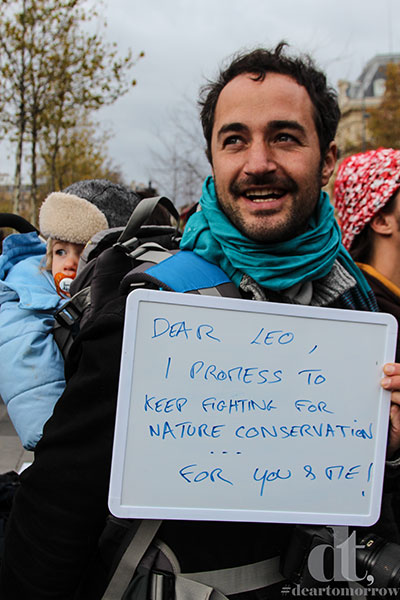 DEAR LEO,
I PROMESS TO
KEEP FIGHTING FOR
NATURE CONSERVATION
...
FOR YOU & ME!
dt,
#deartomorrow